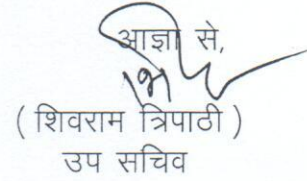 आज्ञा से,
( शिवराम त्रिपाठी )
उप सचिव